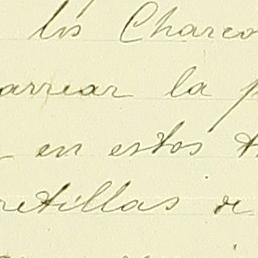 los Charco
arrear la p
en estos t
retillas de